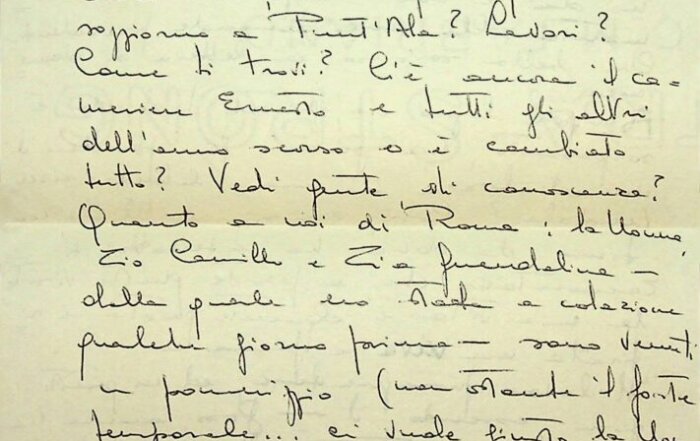 soggiorno a Punt'Ala? Lavori?
Come ti trovi? C'è ancora il ca-
meriere Ernesto e tutti gli altri
dell'anno scorso o è cambiato
tutto? Vedi gente di conoscenza?
Quanto a noi di Roma: la Nonna,
Zio Camillo e Zia Guendalina -
dalla quale ero stata a colazione
qualche giorno prima - sono venuti
in pomeriggio (nonostante il forte
temporale... ci vuole